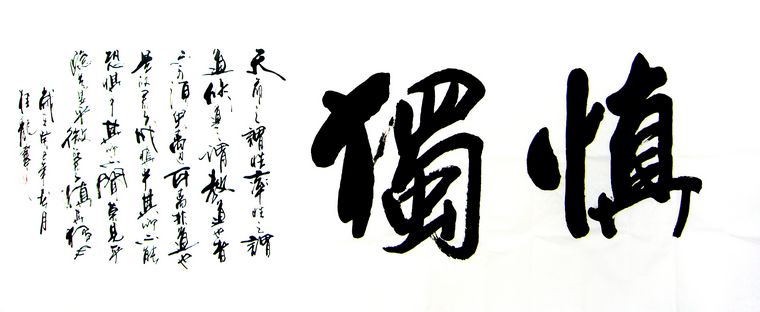 慎獨
天命之謂性率性之謂
道修道之謂教道也者
不可須臾離也可離非道也
是故君子戒慎乎其所不
恐懼乎其所不聞莫見乎
隱莫顯乎微故君子慎其獨也
癸巳年
書